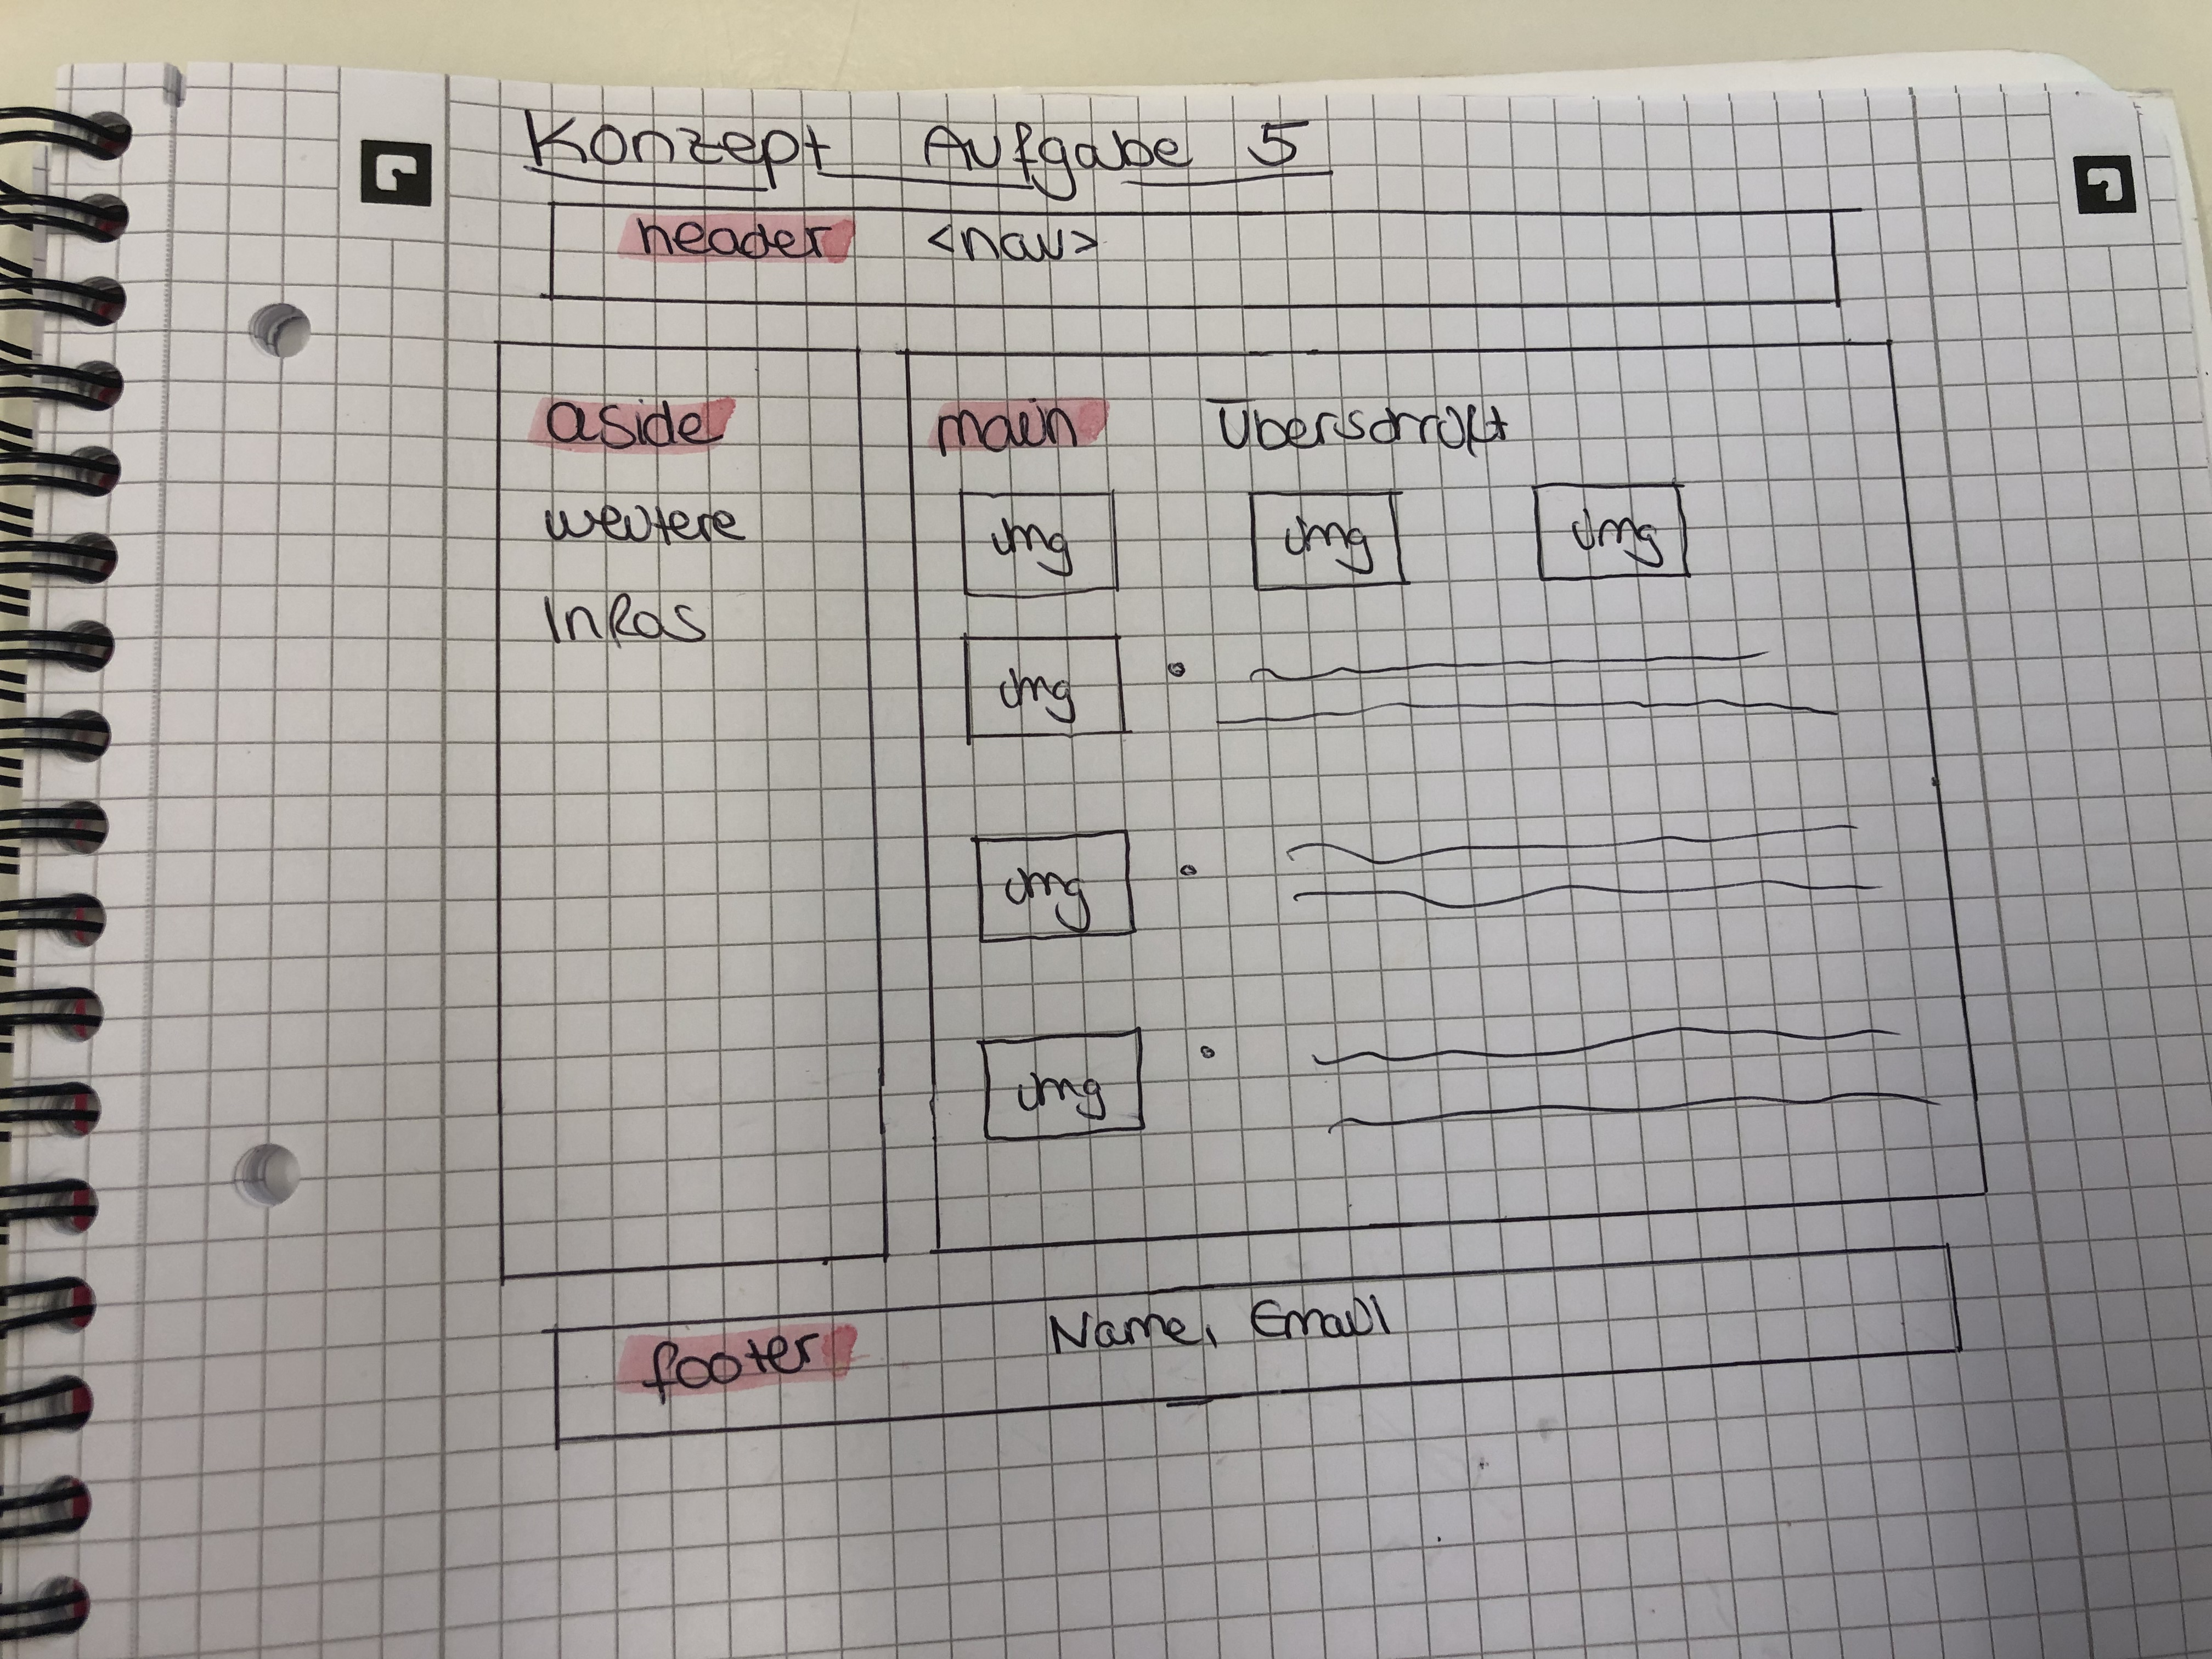 Konzept Aufgabe 5
header <nav>
aside
weitere
Infos
main Überschrift
img img img
img
img
img
footer Name, Email